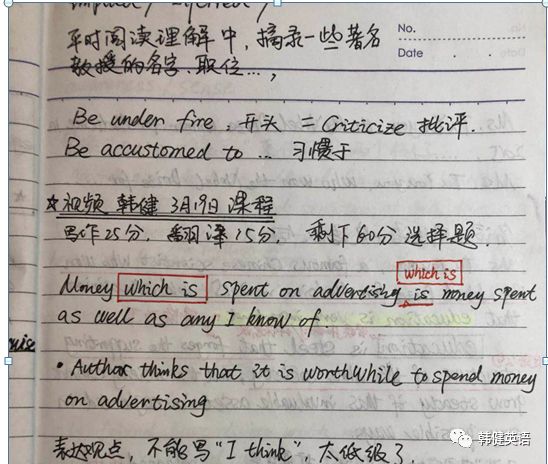 No.
Date
平时阅读理解中，摘录一些著名
教授的名字，职位…，
Be under fire，开头 = Criticize 批评.
Be accustomed to … 习惯于
☆视频 韩健 3月19日 课程
写作25分，翻译15分，剩下60分 选择题.
which is
Money which is spent on advertising is money spent
as well as any I know of
• Author thinks that it is worthwhile to spend money
on advertising
表达观点，不能写"I think"，太低级了.
韩健英语